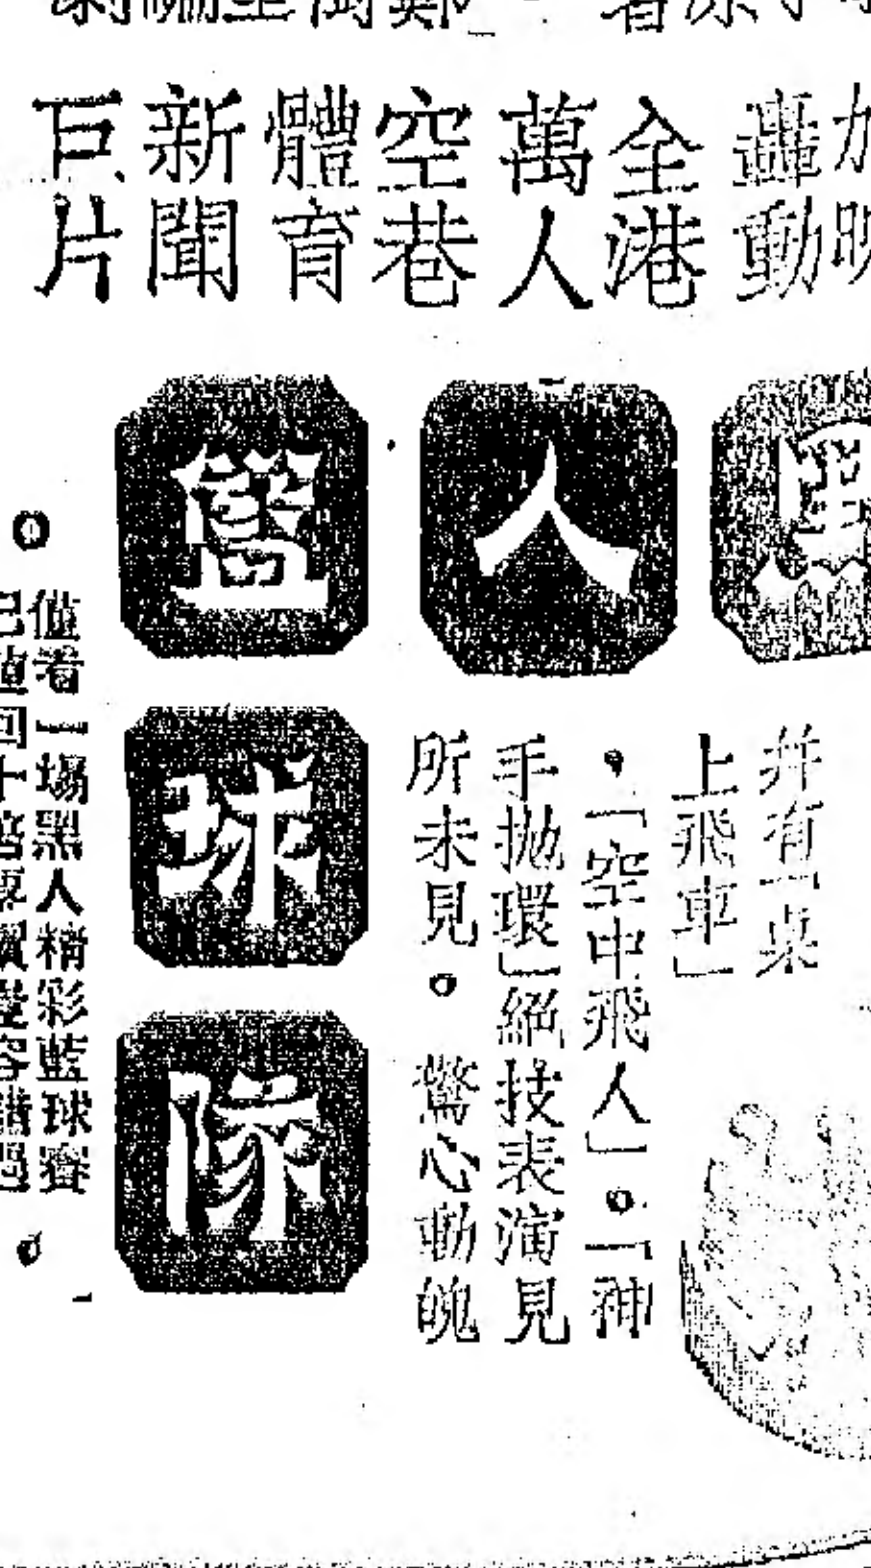 加映
轟動
全港
萬人
空巷
體育
新聞
巨片
黑人籃球隊
并有「桌
上飛車」
，「空中飛人」。「神
手拋環」絕技表演見
所未見。驚心動魄
僅看一場黑人精彩藍球賽